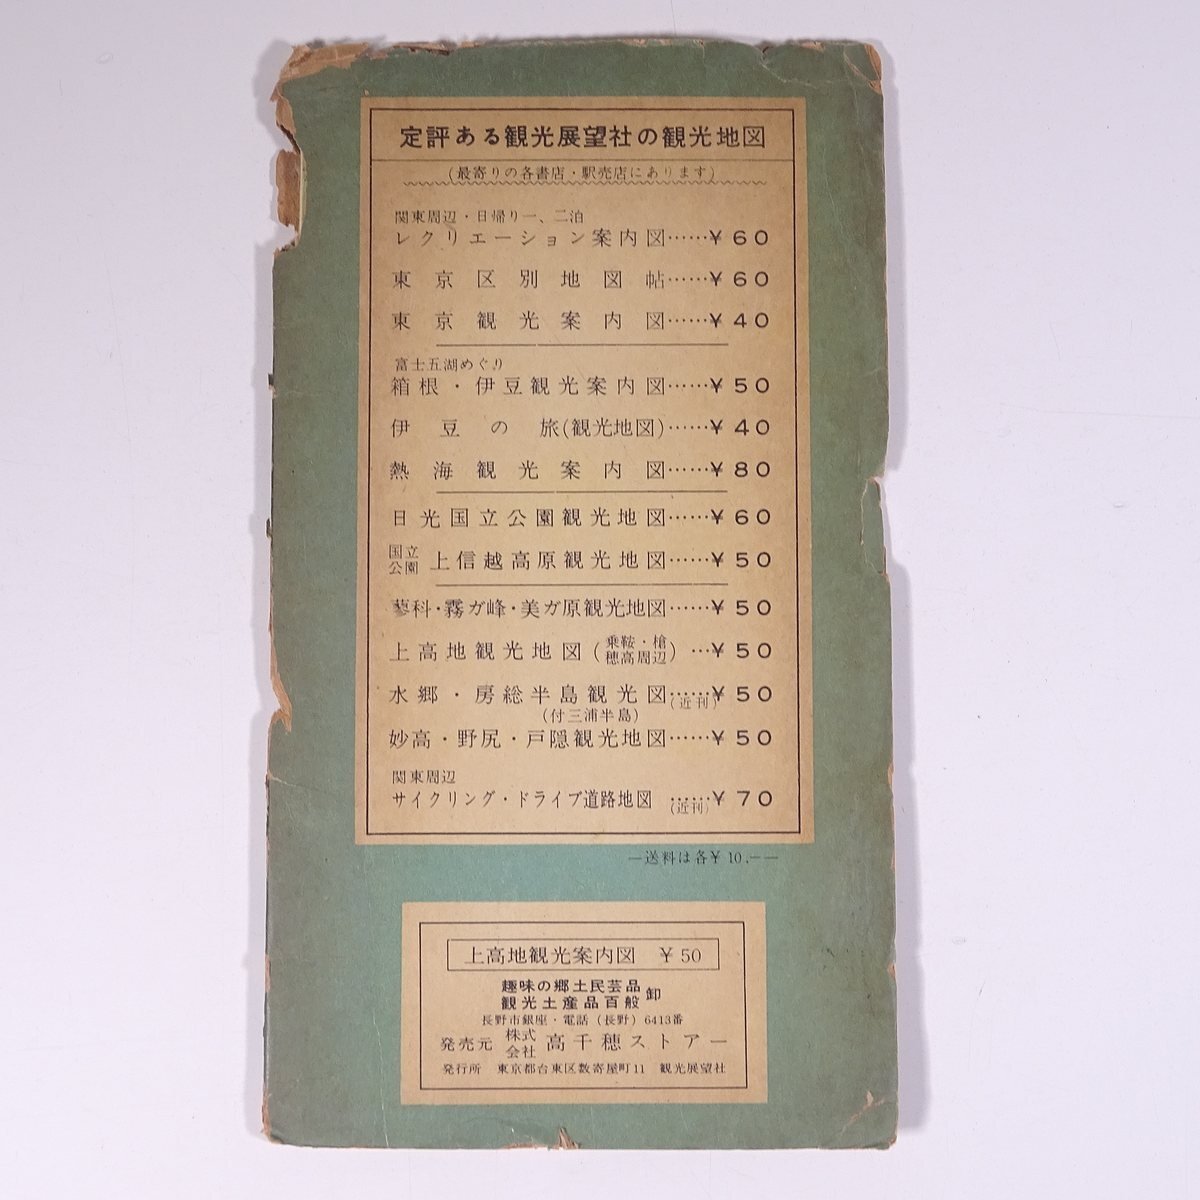 定評ある観光展望社の観光地図
(最寄りの各書店・駅売店にあります)
関東周辺・日帰り一、二泊
レクリエーション案内図……¥60
東京区別地図帖……¥60
東京観光案内図……¥40
富士五湖めぐり
箱根・伊豆観光案内図……¥50
伊豆の旅(観光地図)……¥40
熱海観光案内図……¥80
日光国立公園観光地図……¥60
国立公園 上信越高原観光地図……¥50
蓼科・霧ガ峰・美ガ原観光地図……¥50
上高地観光地図(乗鞍・槍穂高周辺)…¥50
水郷・房総半島観光図……(近刊)¥50
(付三浦半島)
妙高・野尻・戸隠観光地図……¥50
関東周辺
サイクリング・ドライブ道路地図……(近刊)¥70
―送料は各¥10.――
上高地観光案内図 ¥50
趣味の郷土民芸品
観光土産品百般 卸
長野市銀座・電話(長野)6413番
発売元 株式会社 高千穂ストアー
発行所 東京都台東区数寄屋町11 観光展望社